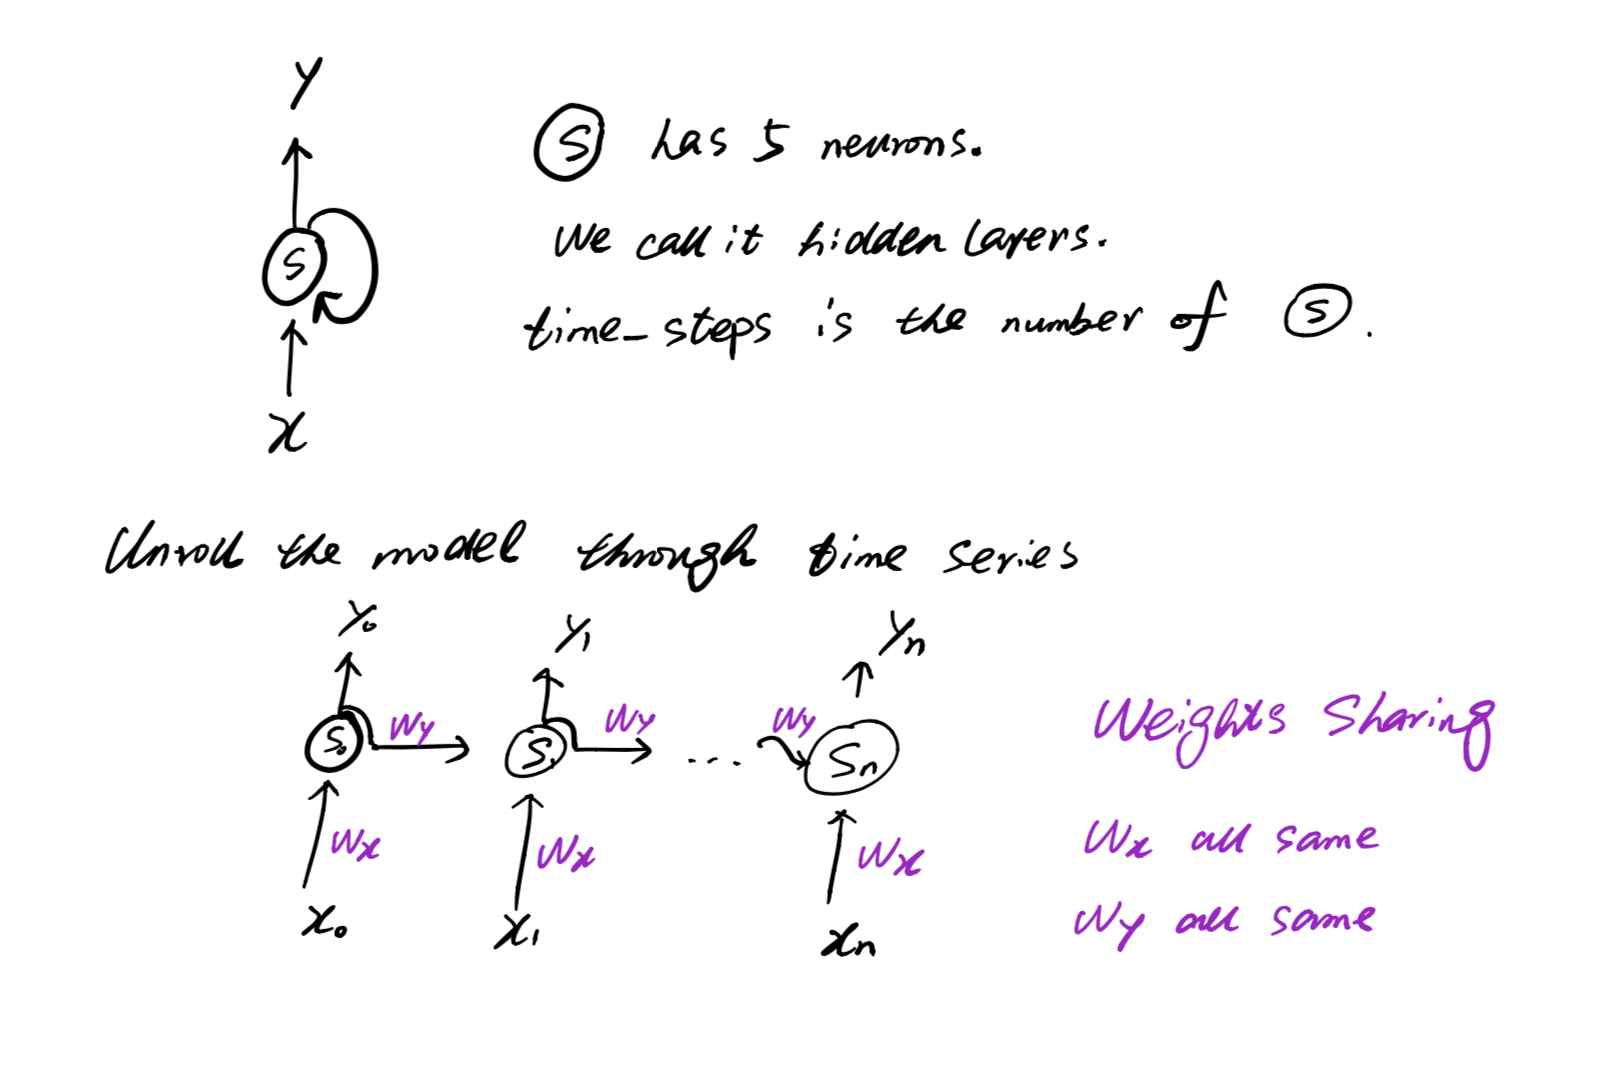 Y
S has 5 neurons.
We call it hidden layers.
S
time_steps is the number of S.
x
Unroll the model through time series
Y₀ Y₁ Yₙ
Wy Wy Wy
S₀ S₁ ... Sₙ
Weights Sharing
Wx Wx Wx
Wx all same
x₀ x₁ xₙ
Wy all same